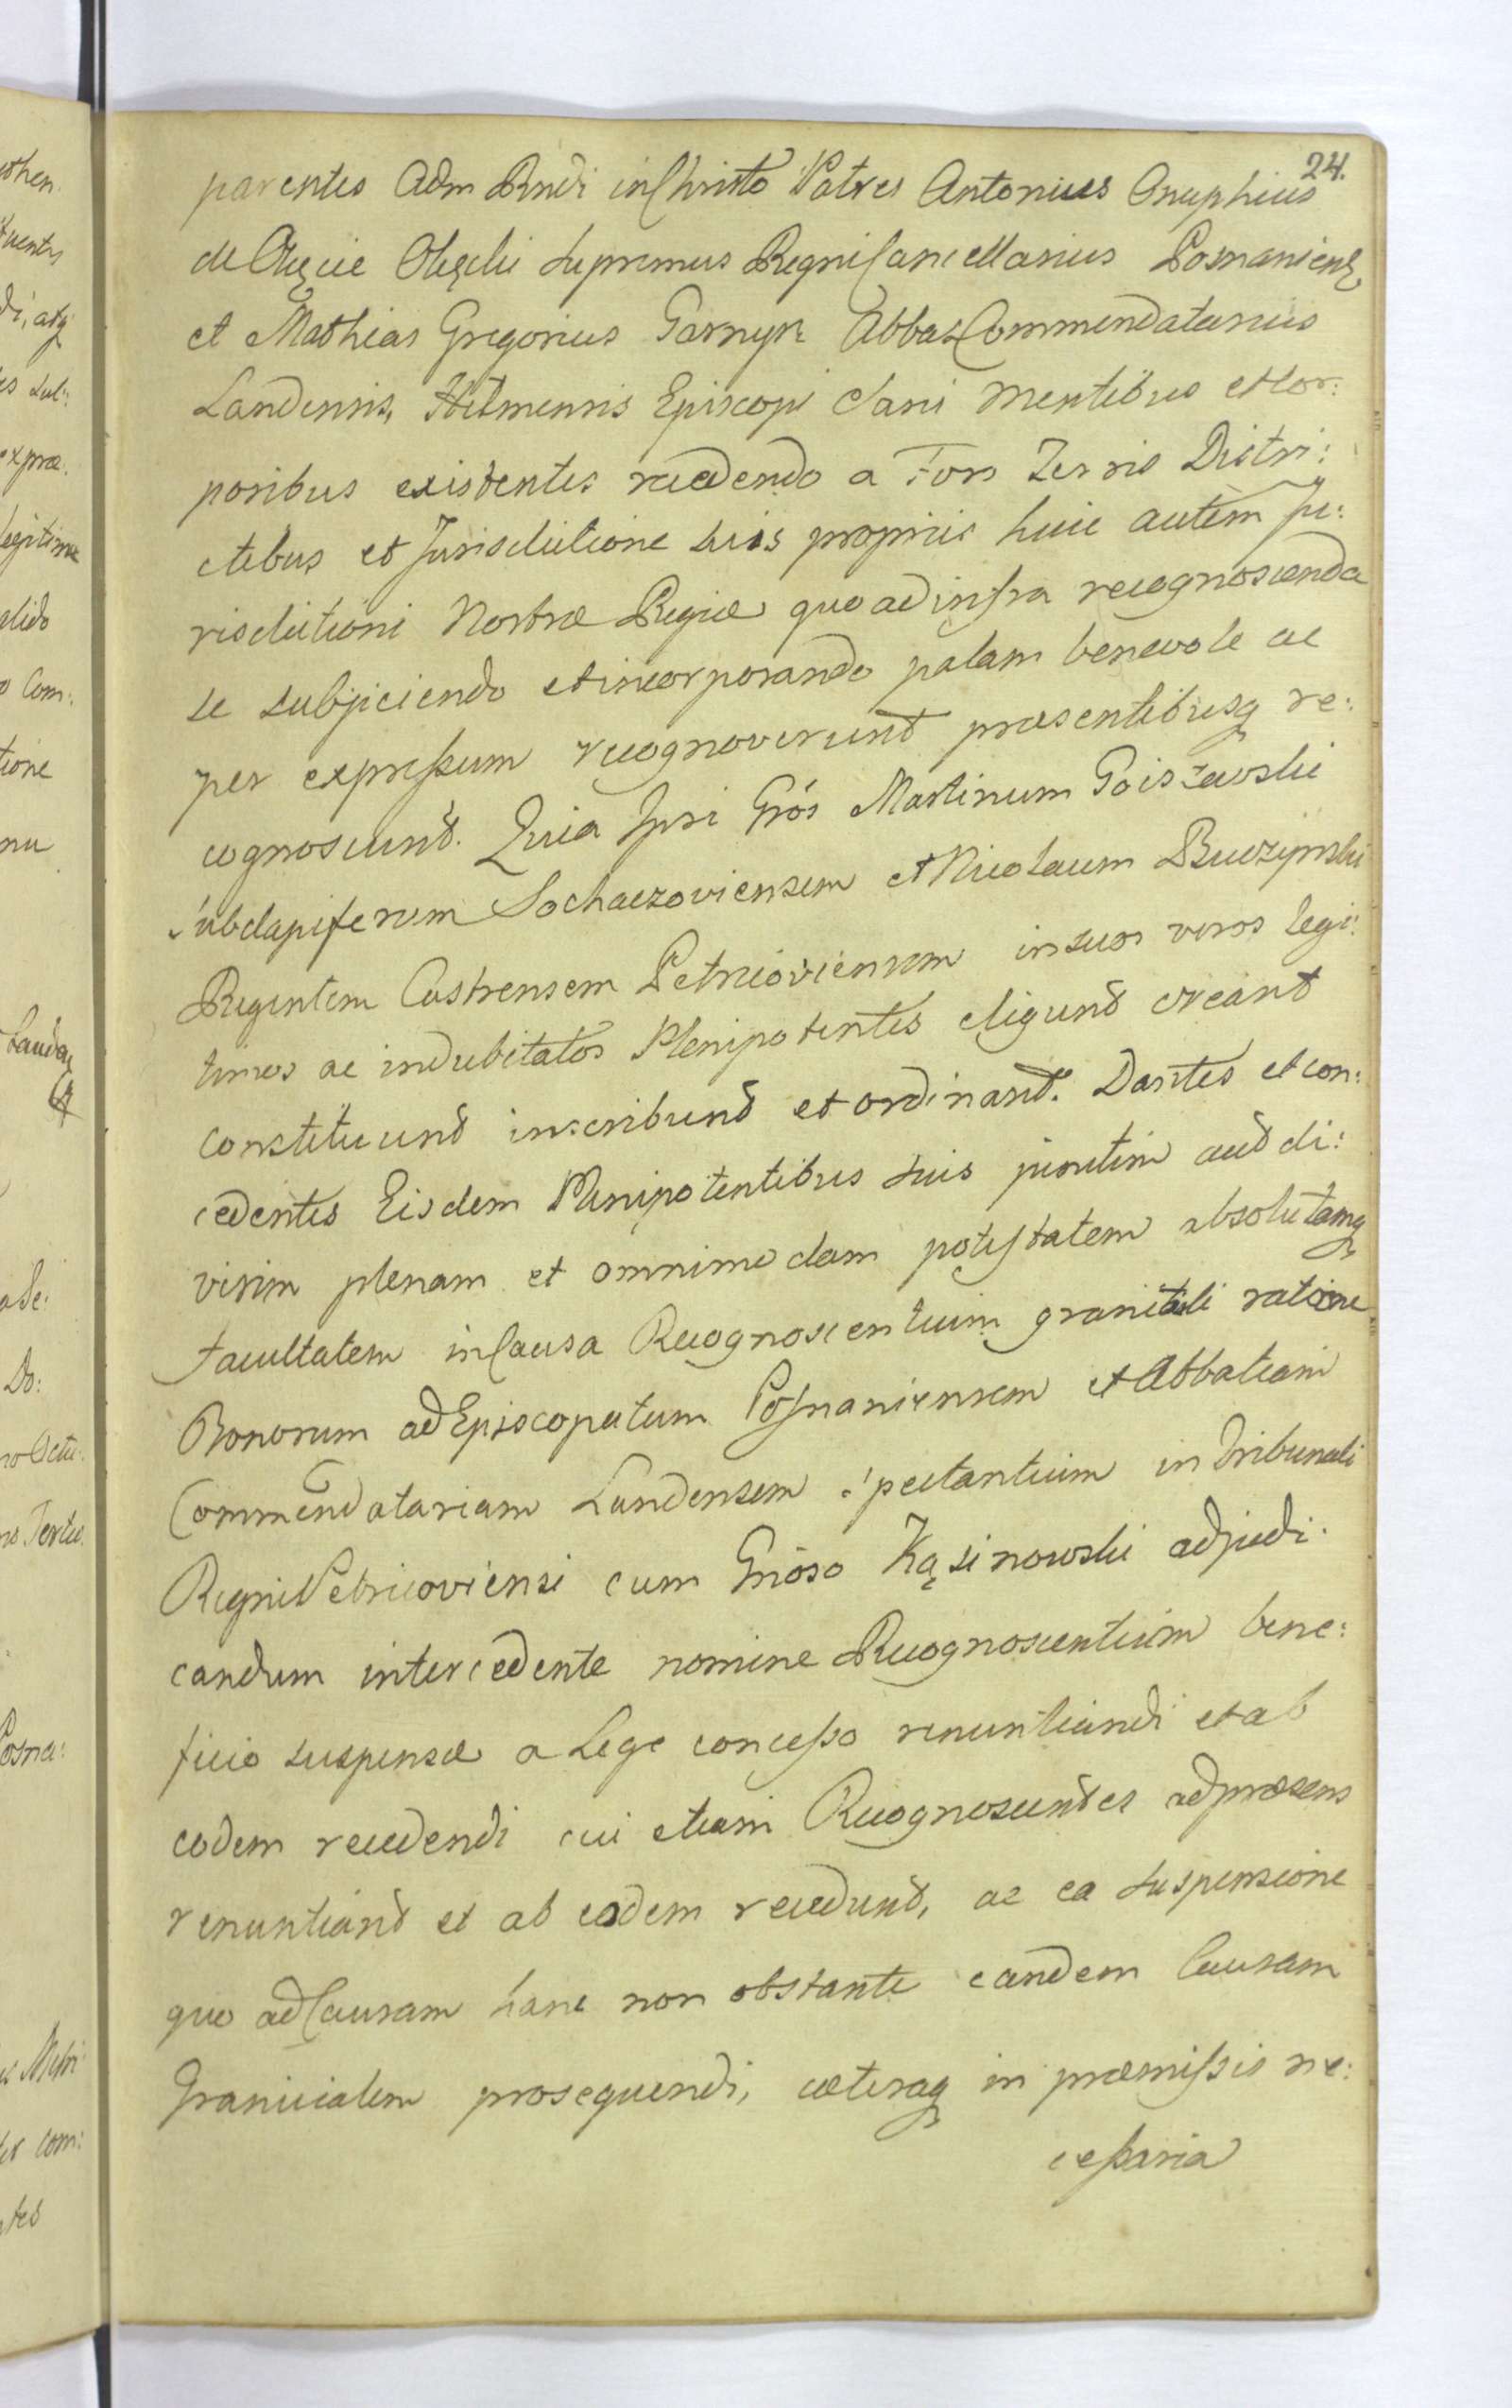 24.
parentes Adm Rndi in Christo Patres Antonius Onuphrius
de Okęcie Okęcki Supremus Regni Cancellarius Posnaniens
et Mathias Gregorius Garnysz Abbas Commendatarius
Landensis, Episcopi Sani Mentibus et Cor:
poribus existentes recedendo a Foro Terris Distri:
ctibus et Jurisdictione suis propriis huic autem Ju:
risdictioni Nostræ Regiæ quo ad infra recognoscenda
se subjiciendo et incorporando palam benevole ac
per expressum recognoverunt præsentibusq re:
cognoscunt. Quia Ipsi Grós Martinum Goiszewski
Subdapiferum Sochaczoviensem et Nicolaum Buczynski
Regentem Castrensem Petricoviensem in suos veros legi:
timos ac indubitatos Plenipotentes eligunt creant
constituunt inscribunt et ordinant. Dantes et con:
cedentes Eisdem Plenipotentibus suis junctim aut di:
visim plenam et omnimodam potestatem absolutamq
facultatem in Causa Recognoscentium graniciali ratione
Bonorum ad Episcopatum Posnaniensem et Abbatiam
Commendatariam Landensem spectantium in Tribunali
Regni Petricoviensi cum Grióso Kąsinowski adjudi:
candum intercedente nomine Recognoscentium bene:
ficio suspensæ a Lege concesso renuntiandi et ab
eodem recedendi cui etiam Recognoscentes ad præsens
renuntiant et ab eodem recedunt, ac ea suspensione
quo ad Causam hanc non obstante eandem Causam
Granicialem prosequendi, cæteraq in præmissis ne:
cessaria